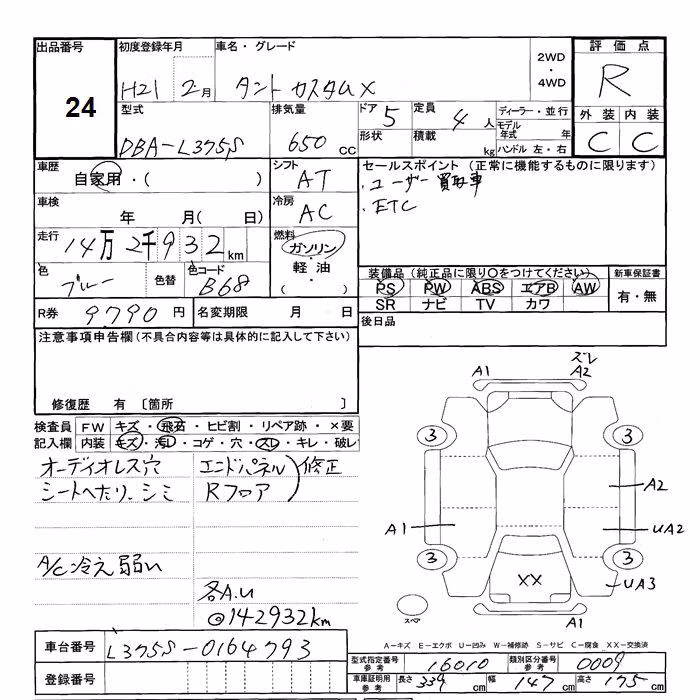 出品番号
24
初度登録年月
H21 2月
車名・グレード
タント カスタム X
2WD
・
4WD
評価点
R
外装 内装
C C
型式
DBA-L375S
排気量
650 cc
ドア 5
形状
定員 4人
積載 kg
ディーラー・並行
モデル年式 年
ハンドル 左・右
車歴
自家用・( )
シフト
AT
セールスポイント(正常に機能するものに限ります)
・ユーザー買取車
・ETC
車検
年 月( 日)
冷房
AC
走行
14万2千932km
燃料
ガソリン
・
軽油
・
( )
色
ブルー
色替
色コード
B68
装備品(純正品に限り〇をつけてください)
PS PW ABS エアB AW
SR ナビ TV カワ
新車保証書
有・無
R券 9790円
名変期限 月 日
後日品
注意事項申告欄(不具合内容等は具体的に記入して下さい)
修復歴 有 〔箇所 〕
検査員記入欄
FW キズ・飛石・ヒビ割・リペア跡・×要
内装 キズ・汚レ・コゲ・穴・スレ・キレ・破レ
オーディオレス穴
シートへたり、シミ
A/C冷え弱い
エンドパネル
Rフロア
修正
各A.U
◎142932km
ズレ
A1 A2
3 3
A2
A1 UA2
3 3
XX
UA3
スペア
A1
A-キズ E-エクボ U-凹み W-補修跡 S-サビ C-腐食 XX-交換済
車台番号 L375S-0164793
登録番号
型式指定番号参考 16010 類別区分番号参考 0009
車庫証明用参考 長さ 339cm 幅 147cm 高さ 175cm